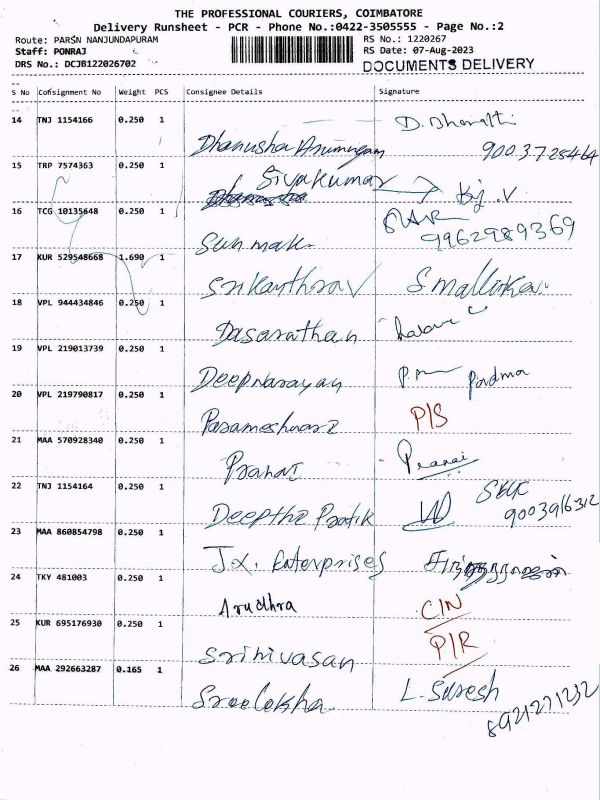 THE PROFESSIONAL COURIERS, COIMBATORE
Delivery Runsheet - PCR - Phone No.:0422-3505555 - Page No.:2
Route: PARSN NANJUNDAPURAM RS No.: 1220267
Staff: PONRAJ RS Date: 07-Aug-2023
DRS No.: DCJB122026702 DOCUMENTS DELIVERY
S No Consignment No Weight PCS Consignee Details Signature
14 TNJ 1154166 0.250 1 D. Bharathi
Dhanusha Arumugam 9003728464
15 TRP 7574363 0.250 1 Sivakumar
16 TCG 10135648 0.250 1
Sun mak. 9962989369
17 KUR 529548668 1.690 1
Srikanthrav
18 VPL 944434846 0.250 1
Dasarathan
19 VPL 219013739 0.250 1
Deepnarayan Padma
20 VPL 219790817 0.250 1
Parameshwari P/S
21 MAA 570928340 0.250 1
Pranai Pranai
22 TNJ 1154164 0.250 1
Deeptha Pratik 9003916312
23 MAA 860854798 0.250 1
J.X. Enterprises
24 TKY 481003 0.250 1
Arudhra C/N
25 KUR 695176930 0.250 1
Srinivasan P/R
26 MAA 292663287 0.165 1
Sreelekha L. Suresh
8921271232